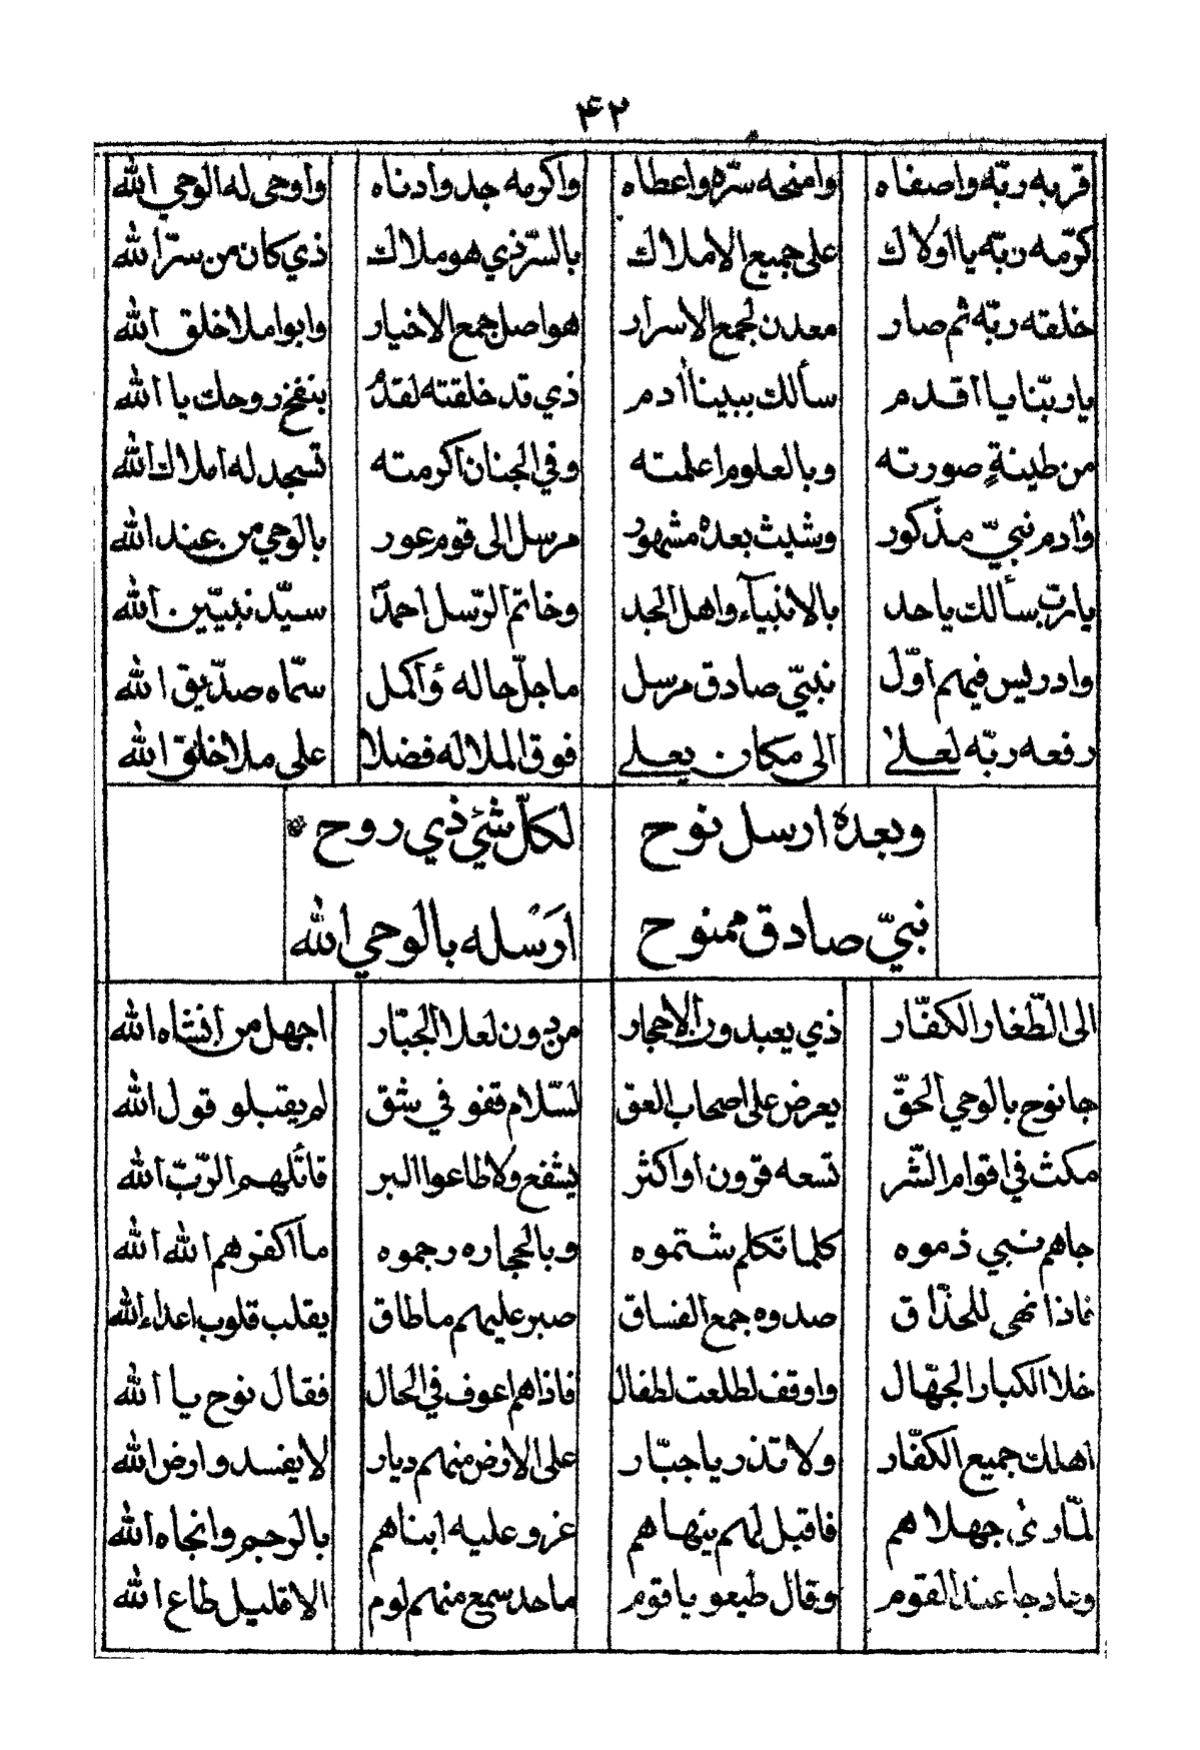 ۴۲
قربه ربّه واصفاه وامنحه سرّه واعطاه واكرمه جد وادناه واوحى له الوحي الله
كرّمه ربّه يا اولاك على جميع الاملاك بالسرّ ذي هو ملاك ذي كان من سرّ الله
خلقته ربّه ثم صار معدن لجمع الاسرار هو اصل جمع الاخيار وابوا ملا خلق الله
يا ربّنا يا اقدم سألك ببينا أدم ذي قد خلقته لقدم بنفخ روحك يا الله
من طينةٍ صورته وبالعلوم اعلمته وفي الجنان اكرمته تسجد له املاك الله
وادم نبيّ مذكور وشيث بعده مشهور مرسل الى قوم عور بالوحي من عند الله
يا ربّ سألك يا حد بالانبيآء واهل الجد وخاتم الرّسل احمد سيّد نبيّين الله
وادريس فيهم اوّل نبيّ صادق مرسل ما جلّ حاله وأكمل سمّاه صدّيق الله
رفعه ربّه لعلا الى مكان يعلى فوق الملا له فضلا على ملا خلق الله
وبعده ارسل نوح لكلّ شئ ذي روح
نبيّ صادق ممنوح ارسله بالوحي الله
الى الطّغار الكفّار ذي يعبدون الاحجار من دون لعلا الجبّار اجهل من انشاه الله
جا نوح بالوحي الحقّ يعرض على اصحاب العق لسّلام قفو في شق لم يقبلو قول الله
مكث في اقوام الشّر تسعه قرون او اكثر يشفع ولا طاعوا البر قاتلهم الرّبّ الله
جاهم نبي ذموه كلما تكلم شتموه وبالحجاره رجموه ما اكفرهم الله الله
فاذا نهى للحذّاق صدوه جمع الفساق صبر عليهم ما طاق يقلب قلوب اعداء الله
خلا الكبار الجهّال واوقف لطلعت لطفال فاذا هم اعوف في الحال فقال نوح يا الله
اهلك جميع الكفّار ولا تذر يا جبّار على الارض منهم ديار لا يفسدو ارض الله
لمّا رئى جهلاهم فاقبل لهم ينهاهم غرو عليه ابناهم بالرجم وانجاه الله
وعاد جا عند القوم وقال طيعو يا قوم ما حد سمع منهم لوم الا قليل طاع الله